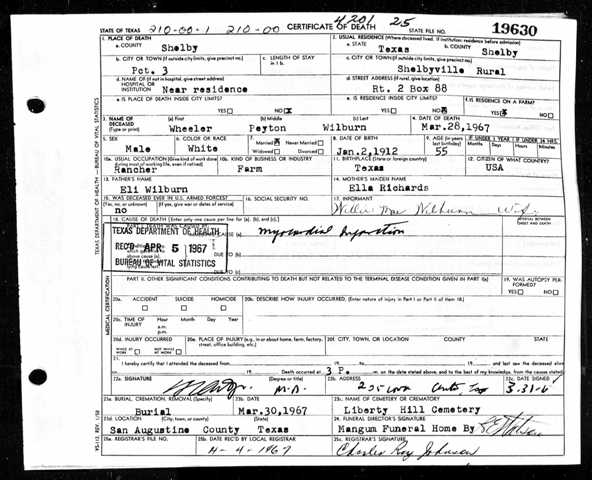 4201 25
STATE OF TEXAS 210-00-1 210-00 CERTIFICATE OF DEATH STATE FILE NO. 19630
1. PLACE OF DEATH 2. USUAL RESIDENCE (Where deceased lived. If institution: residence before admission)
a. COUNTY Shelby a. STATE Texas b. COUNTY Shelby
b. CITY OR TOWN (If outside city limits, give precinct no.) c. LENGTH OF STAY in 1 b. c. CITY OR TOWN (If outside city limits, give precinct no.)
Pct. 3 Shelbyville Rural
d. NAME OF (If not in hospital, give street address) HOSPITAL OR INSTITUTION Near residence d. STREET ADDRESS (If rural, give location) Rt. 2 Box 88
e. IS PLACE OF DEATH INSIDE CITY LIMITS? YES NO X e. IS RESIDENCE INSIDE CITY LIMITS? YES NO f. IS RESIDENCE ON A FARM? YES NO
3. NAME OF DECEASED (Type or print) (a) First (b) Middle (c) Last 4. DATE OF DEATH
Wheeler Peyton Wilburn Mar.28,1967
5. SEX 6. COLOR OR RACE 7. Married Never Married Widowed Divorced 8. DATE OF BIRTH 9. AGE (In years last birthday) IF UNDER 1 YEAR IF UNDER 24 HRS.
Male White Jan.2,1912 55
10a. USUAL OCCUPATION (Give kind of work done during most of working life, even if retired) 10b. KIND OF BUSINESS OR INDUSTRY 11. BIRTHPLACE (State or foreign country) 12. CITIZEN OF WHAT COUNTRY?
Rancher Farm Texas USA
13. FATHER'S NAME 14. MOTHER'S MAIDEN NAME
Eli Wilburn Ella Richards
15. WAS DECEASED EVER IN U.S. ARMED FORCES? 16. SOCIAL SECURITY NO. 17. INFORMANT
(Yes, no, or unknown) (If yes, give war or dates of service)
no
18. CAUSE OF DEATH [Enter only one cause per line for (a), (b), and (c).] INTERVAL BETWEEN ONSET AND DEATH
TEXAS DEPARTMENT OF HEALTH
REC'D APR 5 1967
BUREAU OF VITAL STATISTICS
DUE TO
DUE TO
PART II. OTHER SIGNIFICANT CONDITIONS CONTRIBUTING TO DEATH BUT NOT RELATED TO THE TERMINAL DISEASE CONDITION GIVEN IN PART I(a) 19. WAS AUTOPSY PERFORMED? YES NO
20a. ACCIDENT SUICIDE HOMICIDE 20b. DESCRIBE HOW INJURY OCCURRED. (Enter nature of injury in Part I or Part II of item 18.)
20c. TIME OF INJURY Hour Month Day Year
a.m.
p.m.
20d. INJURY OCCURRED WHILE AT WORK NOT WHILE AT WORK 20e. PLACE OF INJURY (e.g., in or about home, farm, factory, street, office building, etc.) 20f. CITY, TOWN, OR LOCATION COUNTY STATE
21. I hereby certify that I attended the deceased from 19 to 19 and last saw the deceased alive
on 19 Death occurred at 3 P. m. on the date stated above, and to the best of my knowledge, from the causes stated
22a. SIGNATURE (Degree or title) M.D. 22b. ADDRESS 22c. DATE SIGNED
23a. BURIAL, CREMATION, REMOVAL (Specify) 23b. DATE 23c. NAME OF CEMETERY OR CREMATORY
Burial Mar.30,1967 Liberty Hill Cemetery
23d. LOCATION (City, town, or county) (State) 24. FUNERAL DIRECTOR'S SIGNATURE
San Augustine County Texas Mangum Funeral Home By
25a. REGISTRAR'S FILE NO. 25b. DATE REC'D BY LOCAL REGISTRAR 25c. REGISTRAR'S SIGNATURE
4-4-1967 Charles Roy Johnson
TEXAS DEPARTMENT OF HEALTH — BUREAU OF VITAL STATISTICS
MEDICAL CERTIFICATION
VS-112 REV. 1/58